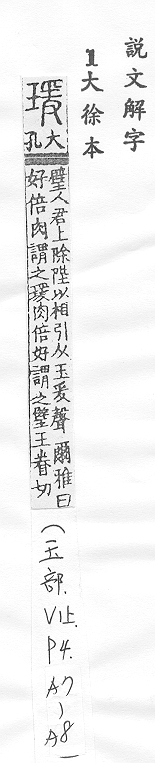 説文解字
1大徐本
瑗
大孔
璧人君上除陛以相引从玉爰聲爾雅曰
好倍肉謂之瑗肉倍好謂之璧王眷切
(玉部.V1上.P4.A7)A8-